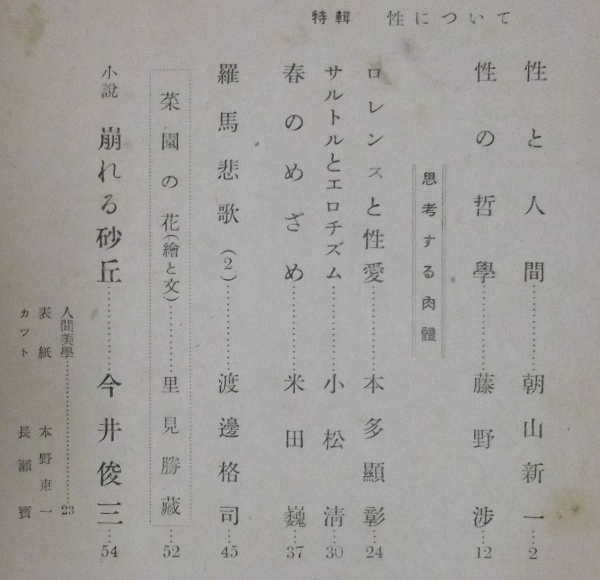 特輯 性について
性と人間…………朝山新一…2
性の哲學…………藤野渉…12
思考する肉體
ロレンスと性愛…………本多顯彰…24
サルトルとエロチズム…………小松清…30
春のめざめ…………米田巍…37
羅馬悲歌(2)…………渡邊格司…45
菜園の花(繪と文)…………里見勝藏…52
小說 崩れる砂丘…………今井俊三…54
人間美學…………23
表紙 本野東一
カツト 長瀬寶